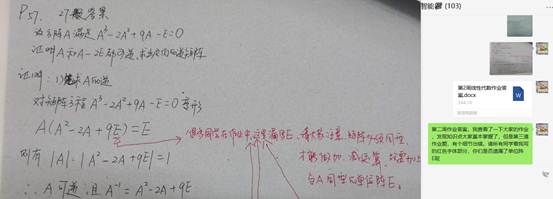 P57. 27题答案
设方阵A满足 A³-2A²+9A-E=0
证明A和A-2E都可逆,
证明: 1) A可逆
对矩阵方程 A³-2A²+9A-E=0 变形
A(A²-2A+9E)=E
则有 |A|·|A²-2A+9E|=1
∴ A可逆, 且A⁻¹=A²-2A+9E
很多同学在作业中这里漏写E, 请大家注意, 矩阵
才能做加、减运算,
与A同型的单位阵E。
智能 (103)
第2周线性代数作业答案.docx
第二周作业答案,我查看了一下大家的作业,发现知识点大家基本掌握了,但是第三道作业题,有个细节出错。请所有同学看我写的红色字体部分,你们是否遗漏了单位阵E呢